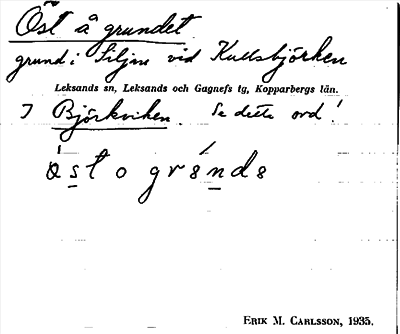 Öst å grundet
grund i Siljan vid Kullsbjörken
Leksands sn, Leksands och Gagnefs tg, Kopparbergs län.
I Björkviken. Se detta ord!
östo grönde
ERIK M. CARLSSON, 1935.